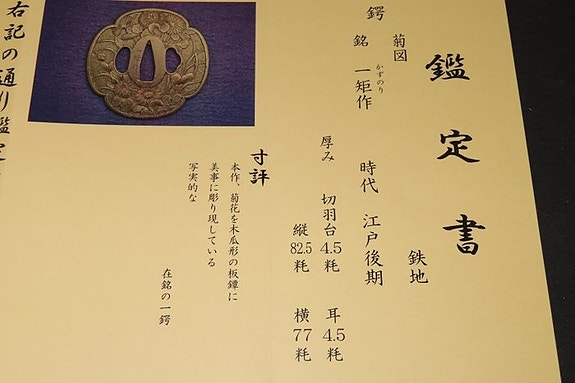 鑑定書
菊図 鉄地
鍔 銘 一矩作 時代 江戸後期
かずのり
厚み 切羽台 4.5 粍 耳 4.5 粍
縦 82.5 粍 横 77 粍
寸評
本作、菊花を木瓜形の板鐔に
美事に彫り現している
写実的な
在銘の一鍔
右記の通り鑑定